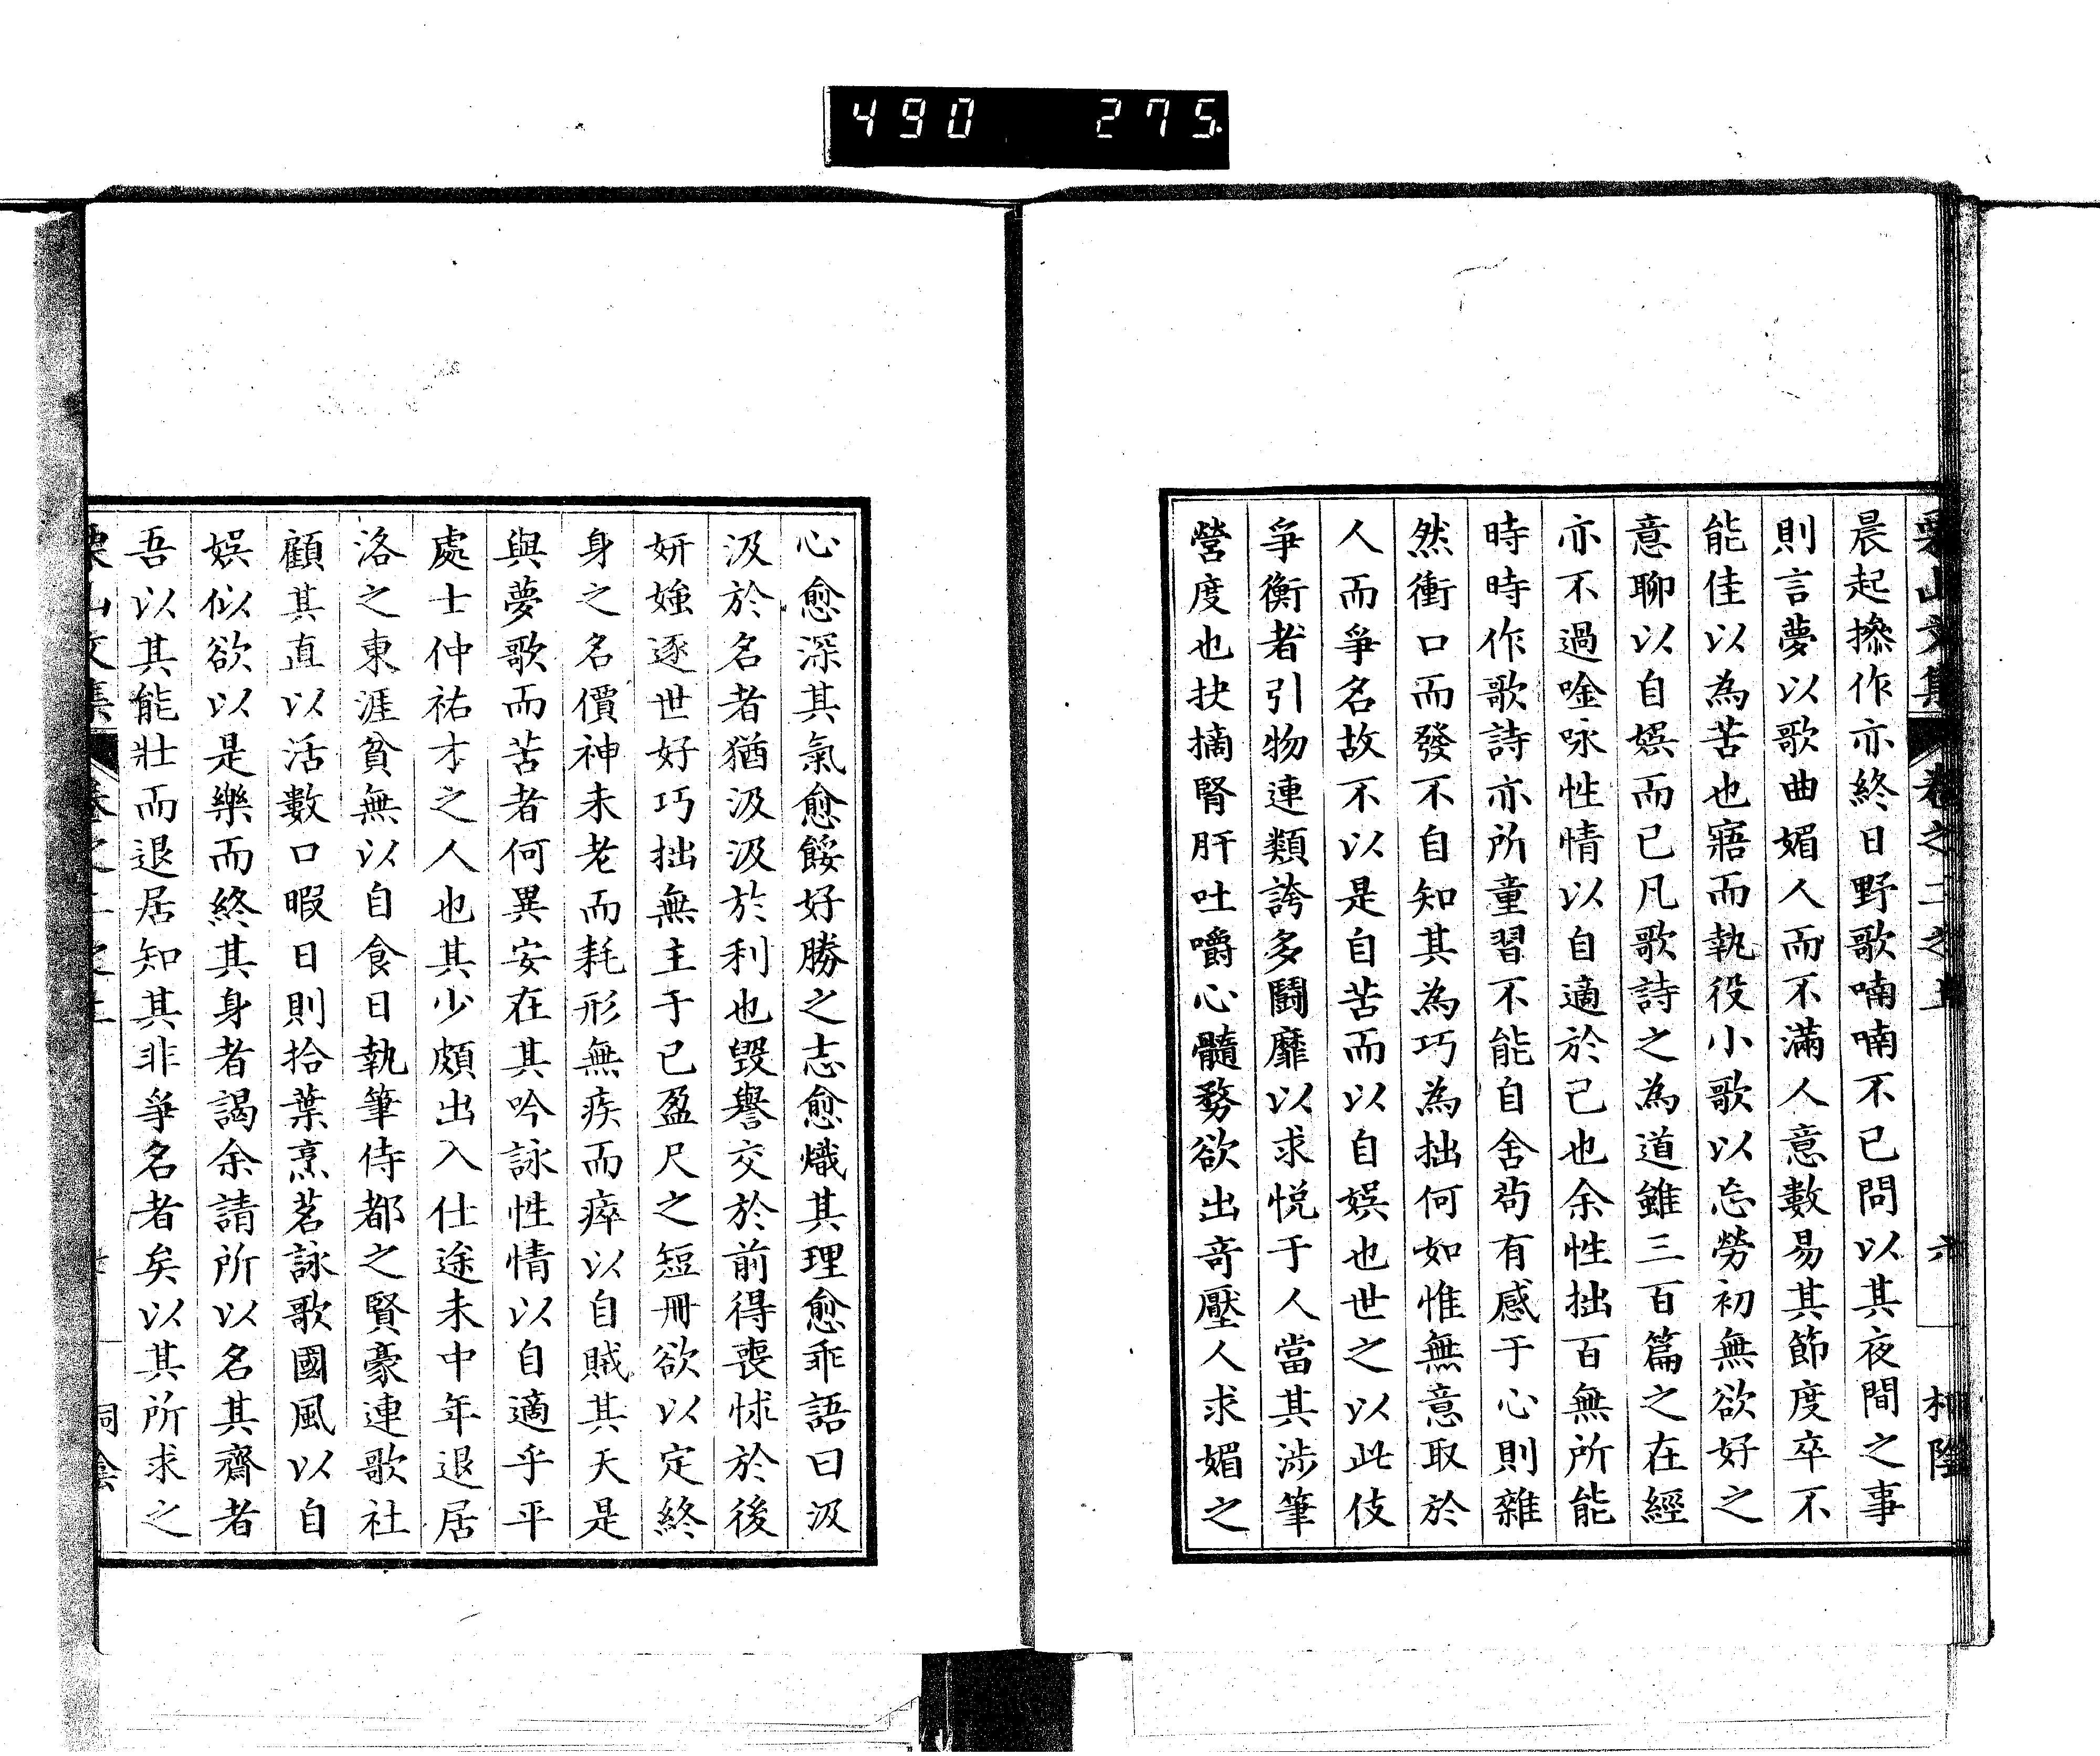 490 275
山文集 卷之二之上 六
晨起搡作亦終日野歌喃喃不已問以其夜間之事
則言夢以歌曲媚人而不滿人意數易其節度卒不
能佳以為苦也寤而執役小歌以忘勞初無欲好之
意聊以自娯而已凡歌詩之為道雖三百篇之在經
亦不過唫咏性情以自適於己也余性拙百無所能
時時作歌詩亦所童習不能自舍茍有感于心則雜
然衝口而發不自知其為巧為拙何如惟無意取於
人而爭名故不以是自苦而以自娯也世之以此伎
爭衡者引物連類誇多鬪靡以求悦于人當其渉筆
營度也抉摘腎肝吐嚼心髓務欲出奇壓人求媚之
心愈深其氣愈餒好勝之志愈熾其理愈乖語曰汲
汲於名者猶汲汲於利也毀譽交於前得喪怵於後
妍媸逐世好巧拙無主于已盈尺之短冊欲以定終
身之名價神未老而耗形無疾而瘁以自賊其天是
與夢歌而苦者何異安在其吟詠性情以自適乎平
處士仲祐才之人也其少頗出入仕途未中年退居
洛之東涯貧無以自食日執筆侍都之賢豪連歌社
顧其直以活數口暇日則拾葉烹茗詠歌國風以自
娯似欲以是樂而終其身者謁余請所以名其齋者
吾以其能壯而退居知其非爭名者矣以其所求之
山文集